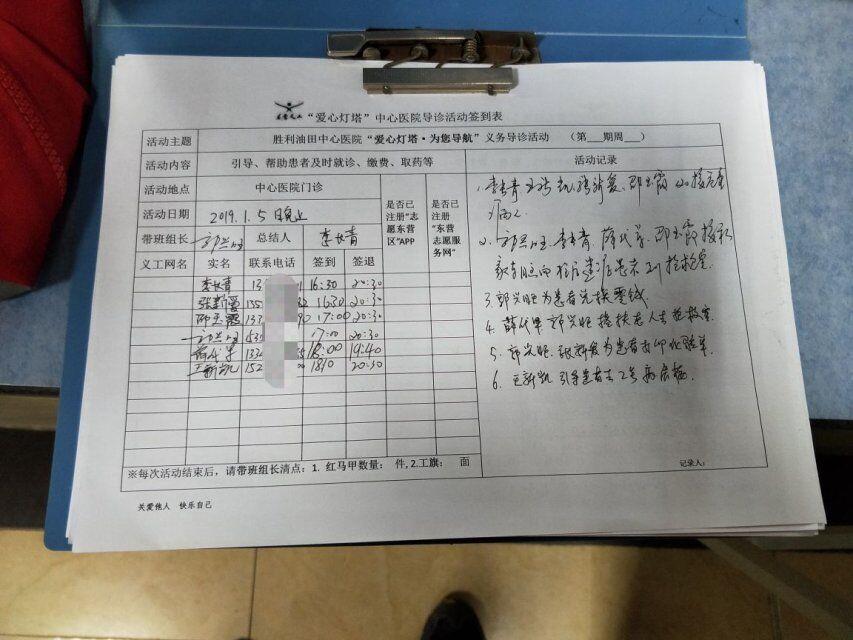 “爱心灯塔”中心医院导诊活动签到表
活动主题 胜利油田中心医院“爱心灯塔·为您导航”义务导诊活动 （第___期周___）
活动内容 引导、帮助患者及时就诊、缴费、取药等 活动记录
活动地点 中心医院门诊 是否已注册“志愿东营区”APP 是否已注册“东营志愿服务网”
活动日期 2019.1.5 日晚上
带班组长 郭兴旺 总结人 李长青
义工网名 实名 联系电话 签到 签退
李长青 13 1 16:30 20:30
张新爱 135 2 1630 20:30
邵玉霞 133 90 17:00 20:30
郭兴旺 17:00 20:30
薛代军 133 5 18:00 19:40
王新凯 152 1810 20:30
1. 李长青
2. 郭兴旺 李长青 薛代军 邵玉霞
3 郭兴旺为患者兑换零钱
4. 薛代军 郭兴旺 搀扶老人去抢救室
5. 郭兴旺、张新爱为患者打印化验单
6. 王新凯 引导患者去2号病房楼
※每次活动结束后，请带班组长清点：1. 红马甲数量： 件，2.工旗： 面
记录人：
关爱他人 快乐自己